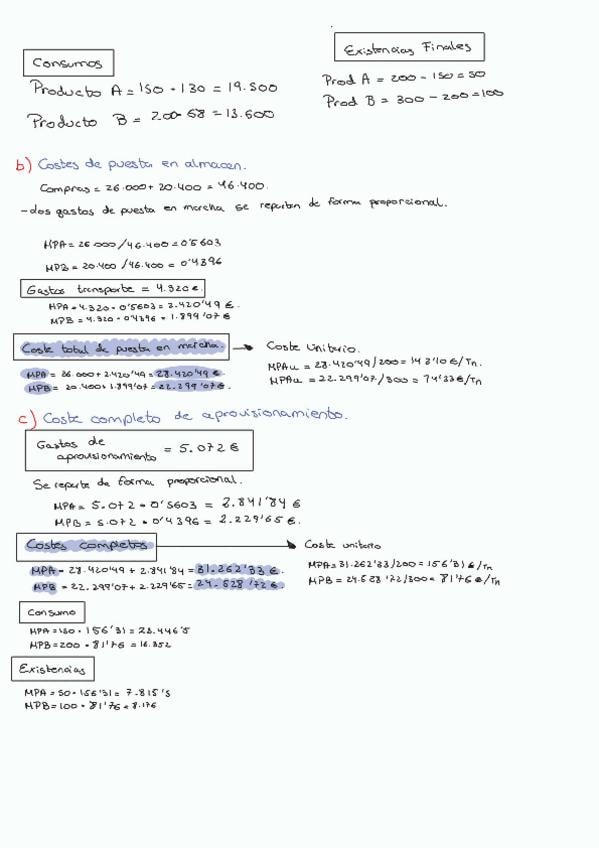 Consumos
Existencias Finales
Producto A = 150 · 130 = 19.500
Prod A = 200 - 150 = 50
Producto B = 200 · 68 = 13.600
Prod B = 300 - 200 = 100
b) Costes de puesta en almacen.
Compras = 26.000 + 20.400 = 46.400.
- dos gastos de puesta en marcha se reparten de forma proporcional.
MPA = 26.000/46.400 = 0'5603
MPB = 20.400/46.400 = 0'4396
Gastos transporte = 4.320 €.
MPA = 4.320 · 0'5603 = 2.420'49 €.
MPB = 4.320 · 0'4396 = 1.899'07 €.
Coste total de puesta en marcha. → Coste Unitario.
MPA = 26.000 + 2.420'49 = 28.420'49 €
MPAu = 28.420'49/200 = 142'10 €/Tn.
MPB = 20.400 + 1.899'07 = 22.299'07 €.
MPAu = 22.299'07/300 = 74'33 €/Tn
c) Coste completo de aprovisionamiento.
Gastos de aprovisionamiento = 5.072 €
Se reparte de forma proporcional.
MPA = 5.072 · 0'5603 = 2.841'84 €
MPB = 5.072 · 0'4396 = 2.229'65 €.
Costes completos → Coste unitario
MPA = 28.420'49 + 2.841'84 = 31.262'33 €.
MPA = 31.262'33/200 = 156'31 €/Tn
MPB = 22.299'07 + 2.229'65 = 24.528'72 €.
MPB = 24.528'72/300 = 81'76 €/Tn
Consumo
MPA = 150 · 156'31 = 23.446'5
MPB = 200 · 81'76 = 16.352
Existencias
MPA = 50 · 156'31 = 7.815'5
MPB = 100 · 81'76 = 8.176